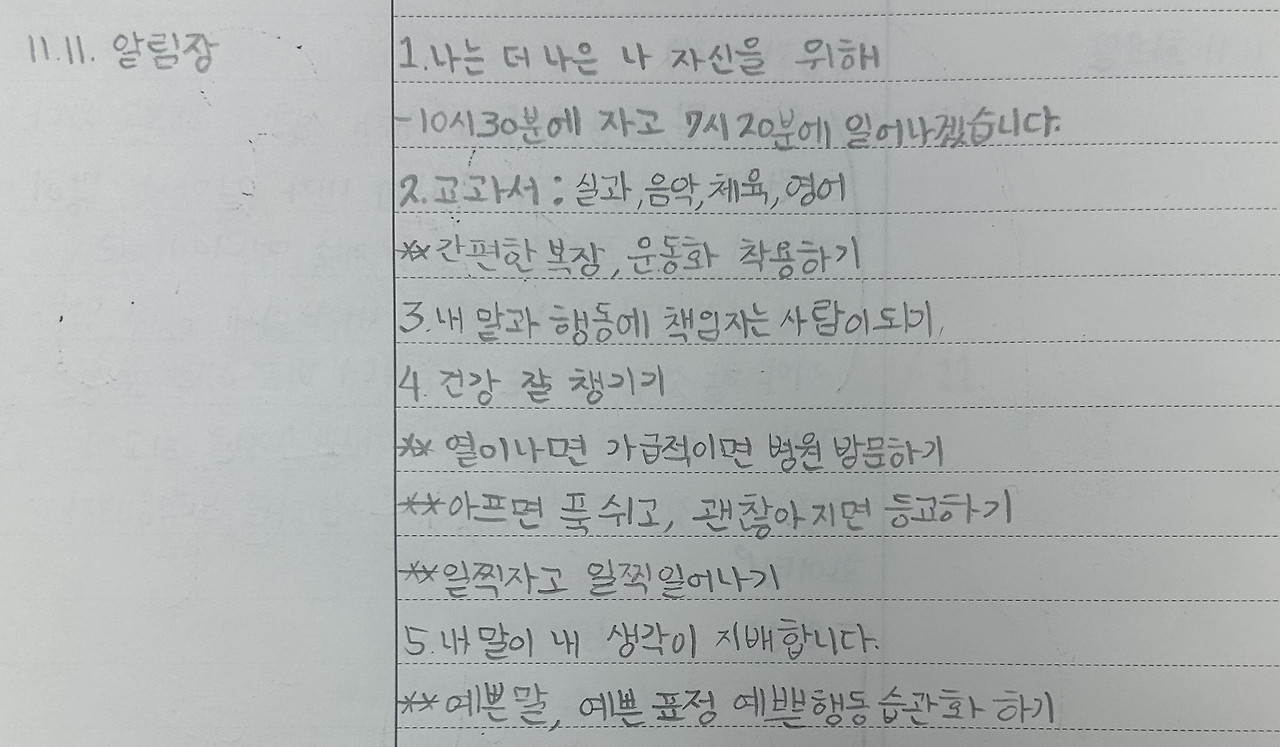 11.11. 알림장
1.나는 더 나은 나 자신을 위해
-10시30분에 자고 7시20분에 일어나겠습니다.
2.교과서 : 실과,음악,체육,영어
** 간편한 복장, 운동화 착용하기
3.내 말과 행동에 책임지는 사람이되기,
4. 건강 잘 챙기기
** 열이나면 가급적이면 병원 방문하기
**아프면 푹 쉬고, 괜찮아지면 등교하기
**일찍자고 일찍일어나기
5.내말이 내 생각이 지배합니다.
**예쁜말, 예쁜 표정 예쁜행동습관화 하기